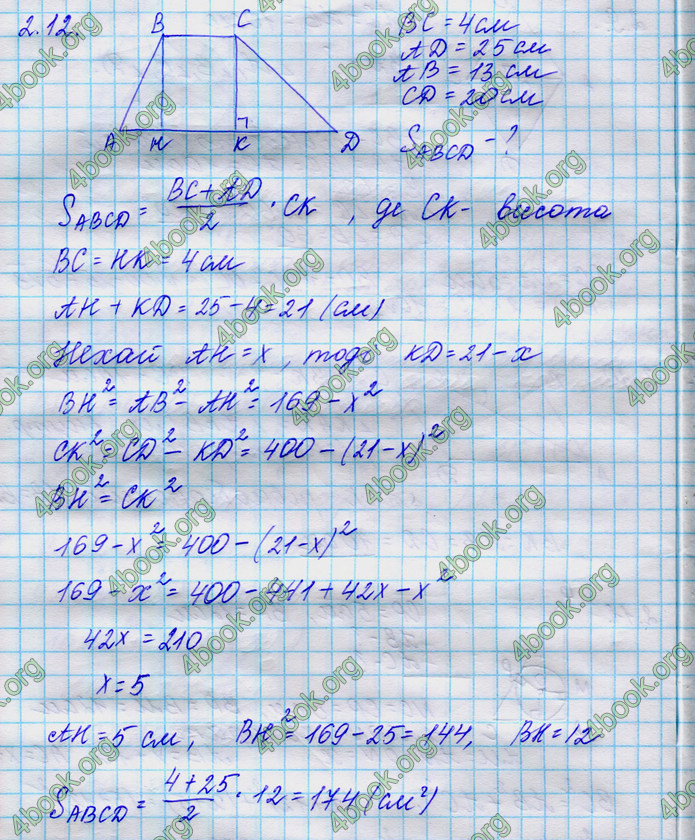 2.12.
B C
A H K D
BC = 4 см
AD = 25 см
AB = 13 см
CD = 20 см
S_ABCD - ?
S_ABCD = (BC + AD)/2 · CK, де CK - висота
BC = HK = 4 см
AH + KD = 25 - 4 = 21 (см)
Нехай AH = x, тоді KD = 21 - x
BH² = AB² - AH² = 169 - x²
CK² = CD² - KD² = 400 - (21 - x)²
BH² = CK²
169 - x² = 400 - (21 - x)²
169 - x² = 400 - 441 + 42x - x²
42x = 210
x = 5
AH = 5 см, BH² = 169 - 25 = 144, BH = 12
S_ABCD = (4 + 25)/2 · 12 = 174 (см²)
4book.org